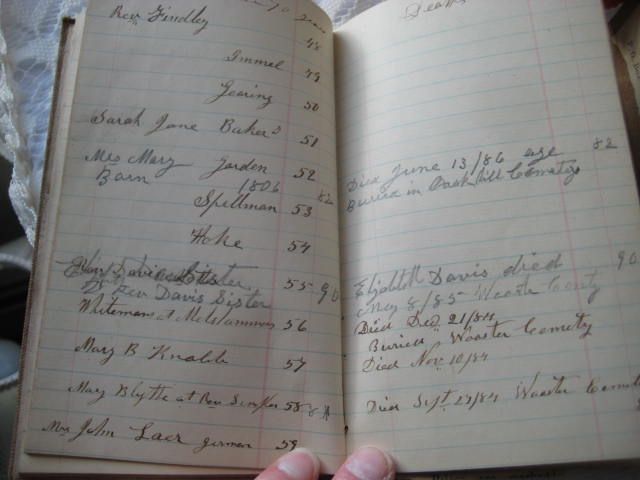 70 years
Rev Findley 48
Immel 49
Gearing 50
Sarah Jane Bakers 51
Mrs Mary Jorden 52
Born 1806 82
Spellman 53
Hoke 54
Davis Sister 55 90
Rev Davis Sister
Whiteman at McLammers 56
Mary B Knable 57
Mary Blythe at Rev Simpson 58
Mrs John Laer german 59
Deaths
Died June 13/86 age 82
Buried in Oak hill Cemetery
Elizabeth Davis died 90
May 8/85 Wooster County
Died Dec 21/84
Buried Wooster Cemety
Died Nov 10/84
Died Sept 29/84 Wooster Cemet